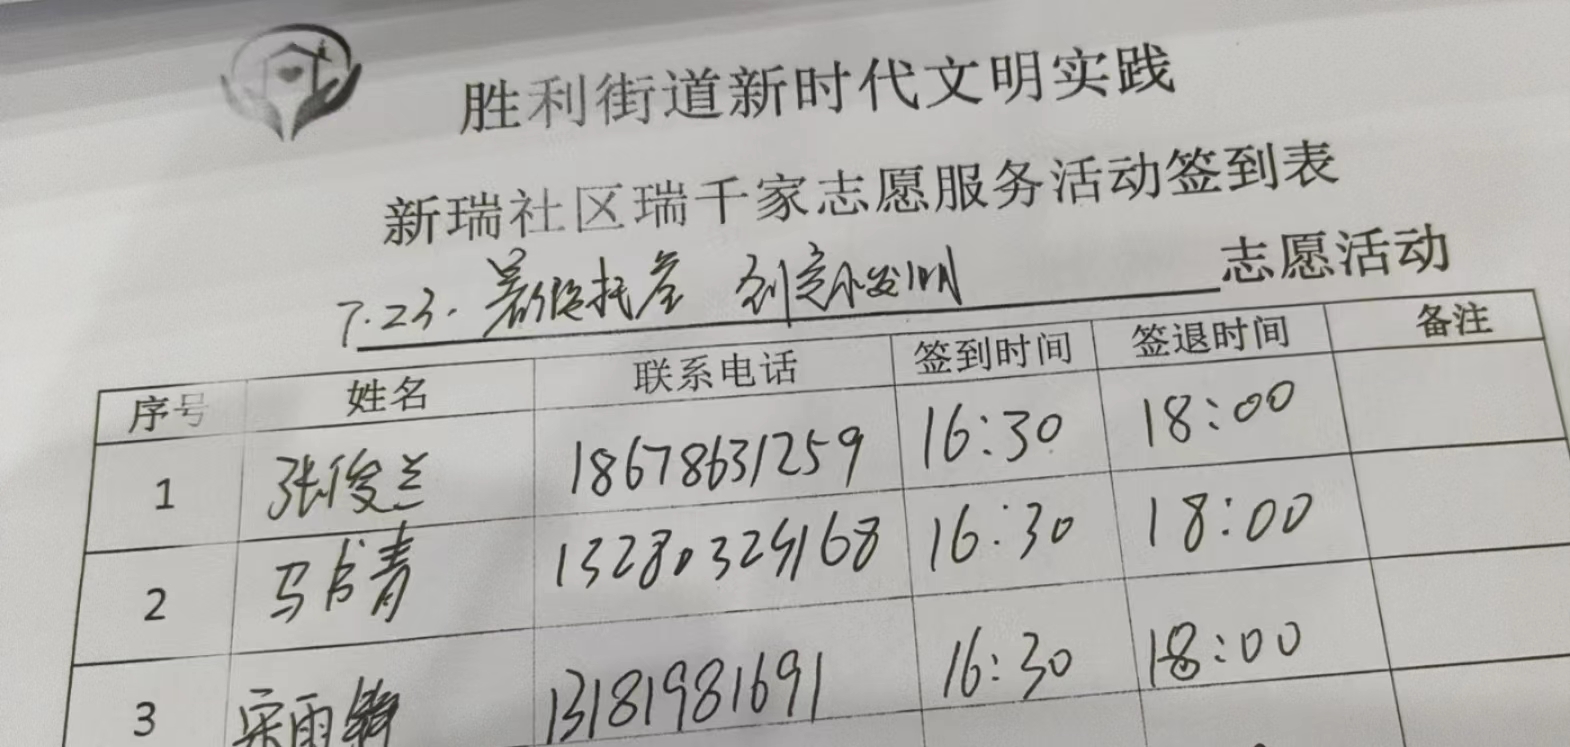 胜利街道新时代文明实践
新瑞社区瑞千家志愿服务活动签到表
7.23. 暑假托管 创意小发明 志愿活动
序号 姓名 联系电话 签到时间 签退时间 备注
1 张俊兰 18678631259 16:30 18:00
2 马书青 13280324168 16:30 18:00
3 宋雨 13181981691 16:30 18:00